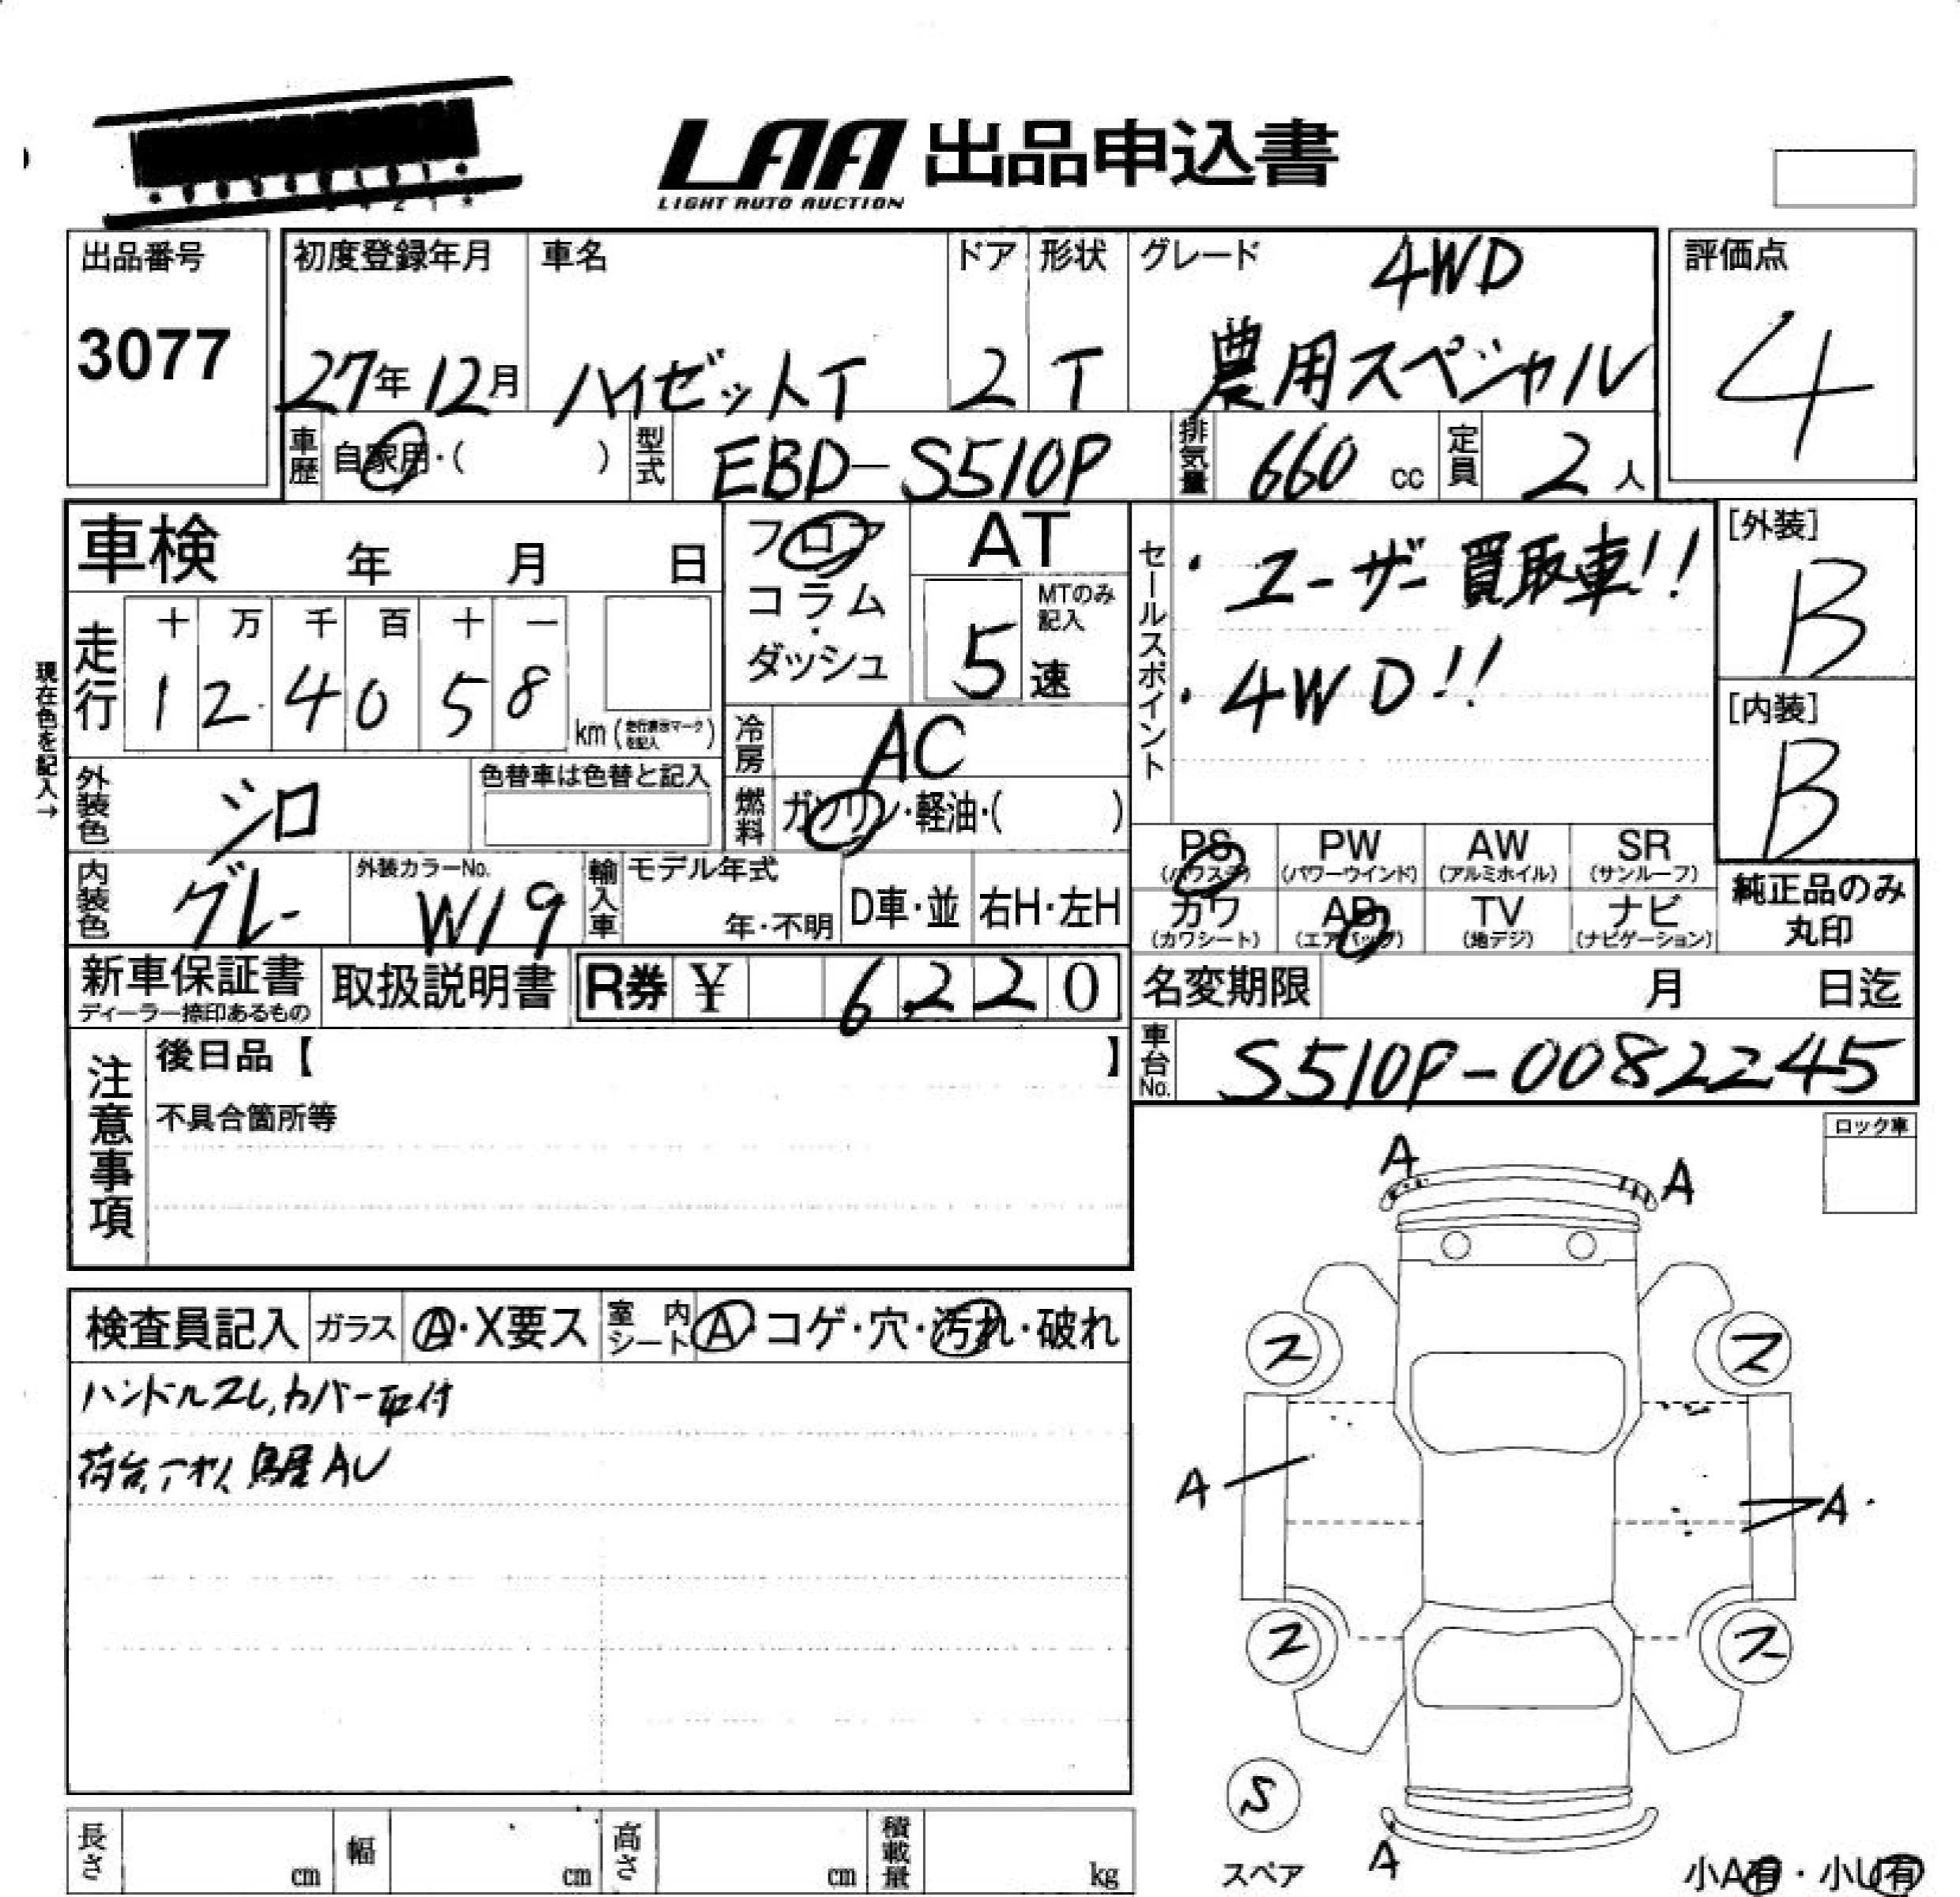 LAA 出品申込書
LIGHT AUTO AUCTION
出品番号
3077
初度登録年月
27年12月
車名
ハイゼットT
ドア
2
形状
T
グレード
4WD
農用スペシャル
評価点
4
車歴
自家用・( )
型式
EBD-S510P
排気量
660 cc
定員
2 人
車検 年 月 日
フロア
コラム
・
ダッシュ
AT
MTのみ
記入
5 速
セールスポイント
・ユーザー買取車!!
・4WD!!
[外装]
B
[内装]
B
現在色を記入→
走行
十 万 千 百 十 一
1 2 4 0 5 8
km (走行表示マークを記入)
冷房
AC
燃料
ガソリン・軽油・( )
外装色
シロ
色替車は色替と記入
内装色
グレー
外装カラーNo.
W19
輸入車
モデル年式
年・不明
D車・並
右H・左H
PS
(パワステ)
PW
(パワーウインド)
AW
(アルミホイル)
SR
(サンルーフ)
カワ
(カワシート)
AB
(エアバッグ)
TV
(地デジ)
ナビ
(ナビゲーション)
純正品のみ
丸印
新車保証書
ディーラー捺印あるもの
取扱説明書
R券 ¥ 6220
名変期限 月 日迄
車台No.
S510P-0082245
注意事項
後日品【 】
不具合箇所等
ロック車
検査員記入
ガラス
A・X要ス
室内シート
A・コゲ・穴・汚れ・破れ
ハンドルスレ,カバー取付
荷台,アオリ,鳥居AU
A
A
ス
ス
A
A
ス
ス
S
スペア
A
小A有・小U有
長さ cm
幅 cm
高さ cm
積載量 kg